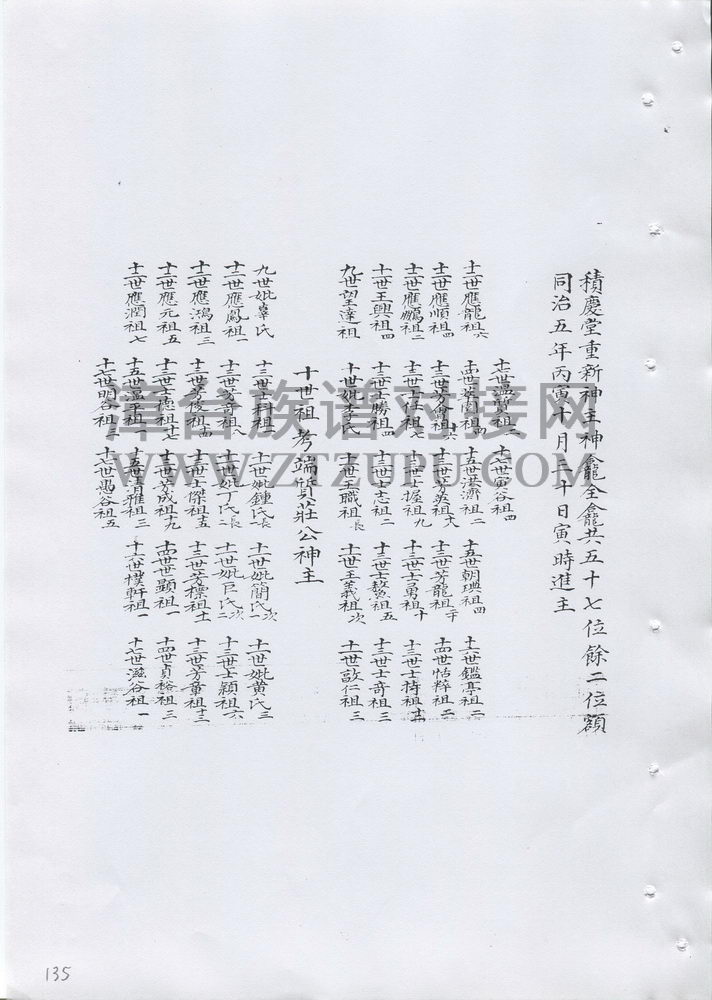 積慶堂重新神主神龕全龕共五十七位餘二位額
同治五年丙寅十月二十日寅時進主
十七世寅谷祖四
十二世應龍祖六
十五世洪濟祖二
十五世朝璵祖四
十六世鑑亭祖二
十二世應順祖四
十三世芳會祖十六
十三世芳英祖十八
十三世芳龍祖二十
十四世怡粹祖二
十二世應鵬祖二
十三世士任祖七
十三世士握祖九
十三世士勇祖十
十三世士持祖
十一世王興祖四
十三世士勝祖四
十三世士志祖二
十三世士鰲祖五
十三世士奇祖三
九世望達祖
十世妣李氏
十一世王職祖長
十一世王義祖次
十一世啟仁祖三
十世祖考端質莊公神主
九世妣辜氏
十三世士科祖一
十一世妣鍾氏長
十一世妣簡氏次
十一世妣黃氏三
十二世應鳳祖一
十三世芳奇祖八
十一世妣丁氏長
十一世妣氏次
十三世士穎祖六
十二世應鴻祖三
十三世芳俊祖十四
十三世士傑祖十五
十三世芳標祖十一
十三世芳童祖十三
十二世應元祖五
十三世士忠祖十七
十三世芳成祖十九
十四世世顯祖一
十四世貞裕祖三
十二世應潤祖七
十五世温平祖一
十五世清雅祖三
十六世樸軒祖一
十七世滋谷祖一
十七世明谷祖二
十七世愚谷祖五
漳台族谱对接网
WWW.ZTZUPU.COM
135